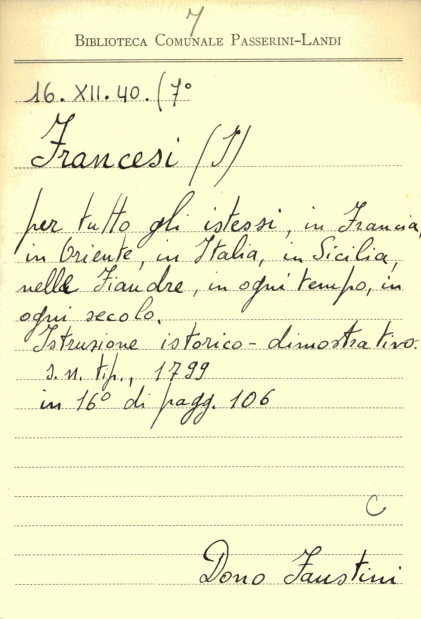 7
BIBLIOTECA COMUNALE PASSERINI-LANDI
16. XII. 40. (7°
Francesi (I)
per tutto gli istessi, in Francia,
in Oriente, in Italia, in Sicilia,
nelle Fiandre, in ogni tempo, in
ogni secolo.
Istruzione istorico - dimostrativo.
s. n. tip., 1799
in 16° di pagg. 106
C
Dono Faustini